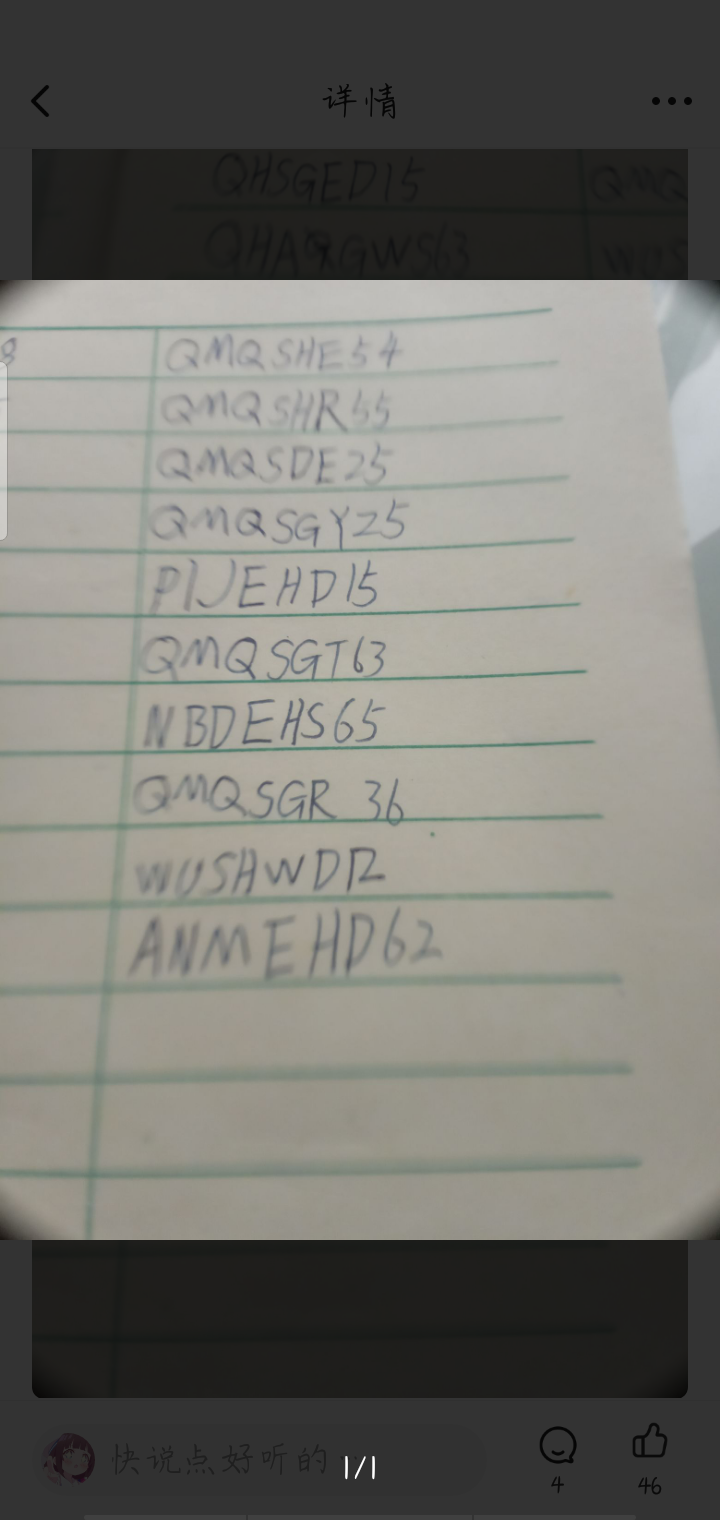 详情
QHSGED15
QMQ
QMQSHE54
QMQSHR55
QMQSDE25
QMQSGY25
PIJEHD15
QMQSGT63
NBDEHS65
QMQSGR 36
WUSHWD12
ANMEHD62
快说点好听的
1/1
4
46